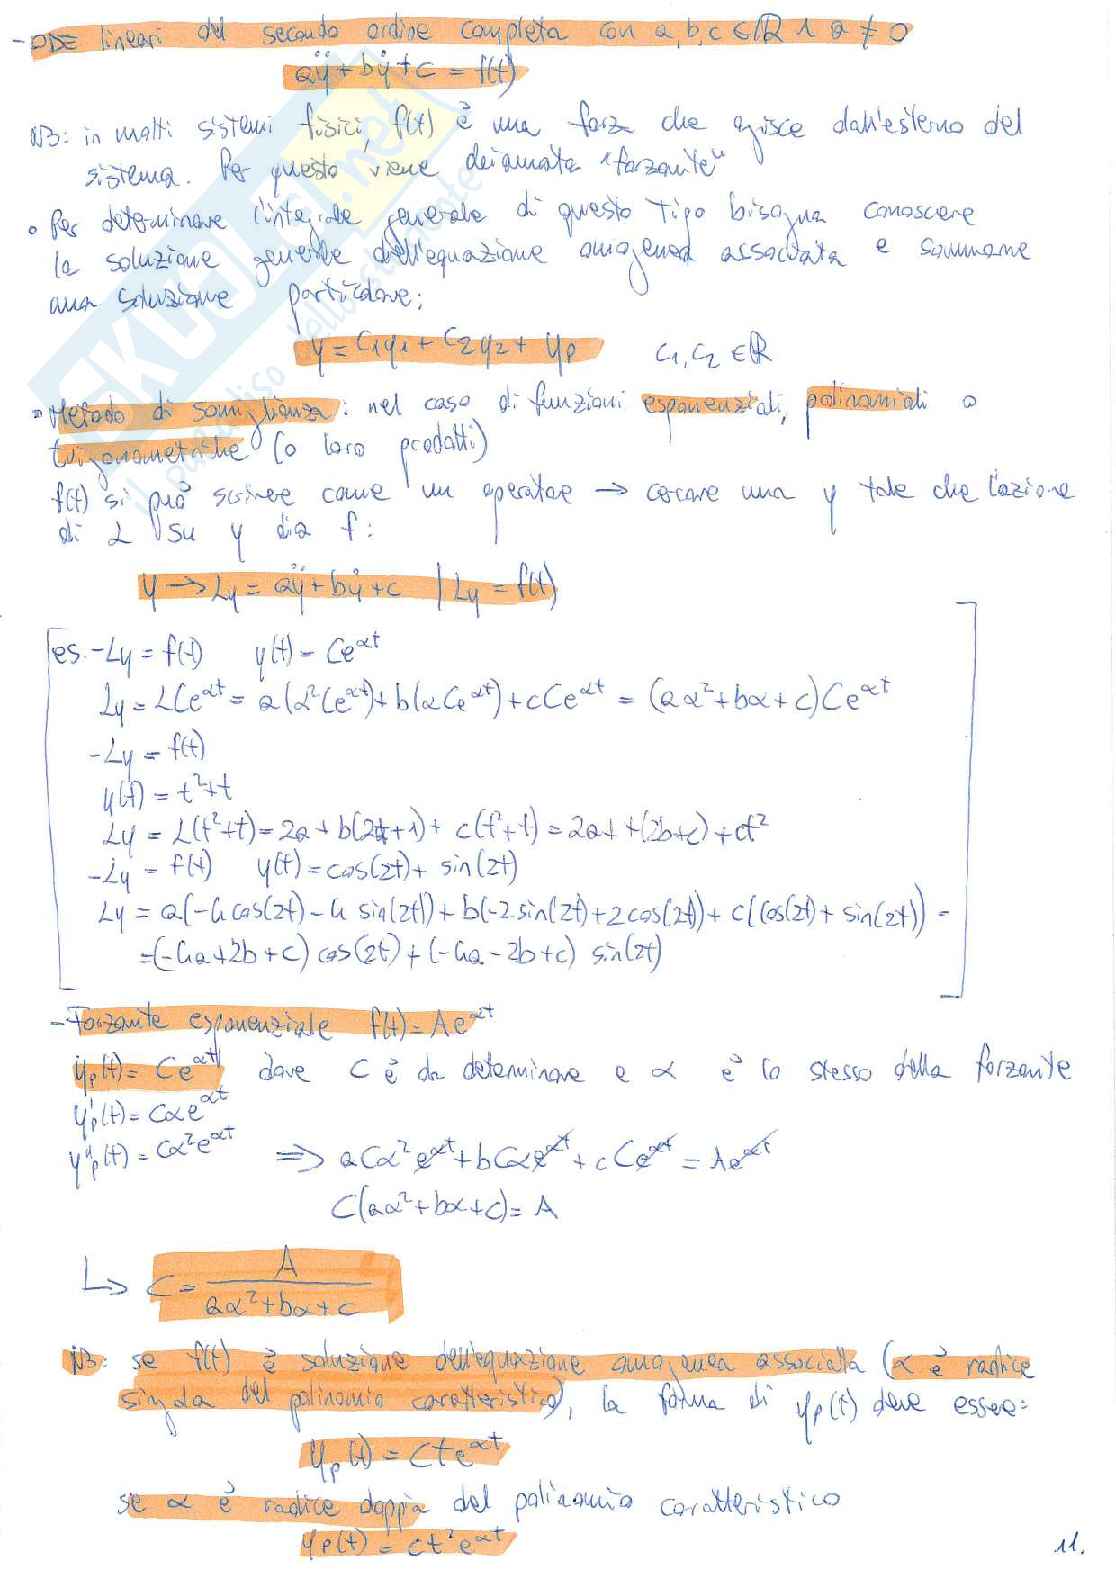 - ODE lineari del secondo ordine completa con a, b, c ∈ ℝ ∧ a ≠ 0
aÿ + bẏ + c = f(t)
NB: in molti sistemi fisici, f(t) è una forza che agisce dall'esterno del
sistema. Per questo viene deiamata "forzante"
• Per determinare l'integrale generale di questo tipo bisogna conoscere
la soluzione generale dell'equazione omogenea associata e sommarne
una soluzione particolare:
y = c₁y₁ + c₂y₂ + yp   c₁, c₂ ∈ ℝ
• Metodo di somiglianza: nel caso di funzioni esponenziali, polinomiali o
trigonometriche (o loro prodotti)
f(t) si può scrivere come un operatore → cercare una y tale che l'azione
di L su y dia f:
y → Ly = aÿ + bẏ + c | Ly = f(t)
es. - Ly = f(t)   y(t) = Ce^αt
Ly = LCe^αt = a(α²Ce^αt) + b(αCe^αt) + cCe^αt = (aα² + bα + c)Ce^αt
- Ly = f(t)
y(t) = t² + t
Ly = L(t² + t) = 2a + b(2t + 1) + c(t² + t) = 2a + t(2b + c) + ct²
- Ly = f(t)   y(t) = cos(2t) + sin(2t)
Ly = a(-4cos(2t) - 4 sin(2t)) + b(-2 sin(2t) + 2cos(2t)) + c(cos(2t) + sin(2t)) =
= (-4a + 2b + c) cos(2t) + (-4a - 2b + c) sin(2t)
- Forzante esponenziale f(t) = Ae^αt
yp(t) = Ce^αt dove C è da determinare e α è lo stesso della forzante
y'p(t) = Cαe^αt
y''p(t) = Cα²e^αt ⇒ aCα²e^αt + bCαe^αt + cCe^αt = Ae^αt
C(aα² + bα + c) = A
↳ C = A / (aα² + bα + c)
NB: se f(t) è soluzione dell'equazione omogenea associata (α è radice
singola del polinomio caratteristico), la forma di yp(t) deve essere:
yp(t) = Cte^αt
se α è radice doppia del polinomio caratteristico
yp(t) = ct²e^αt
11.
SKUOLA.net
il paradiso dello studente